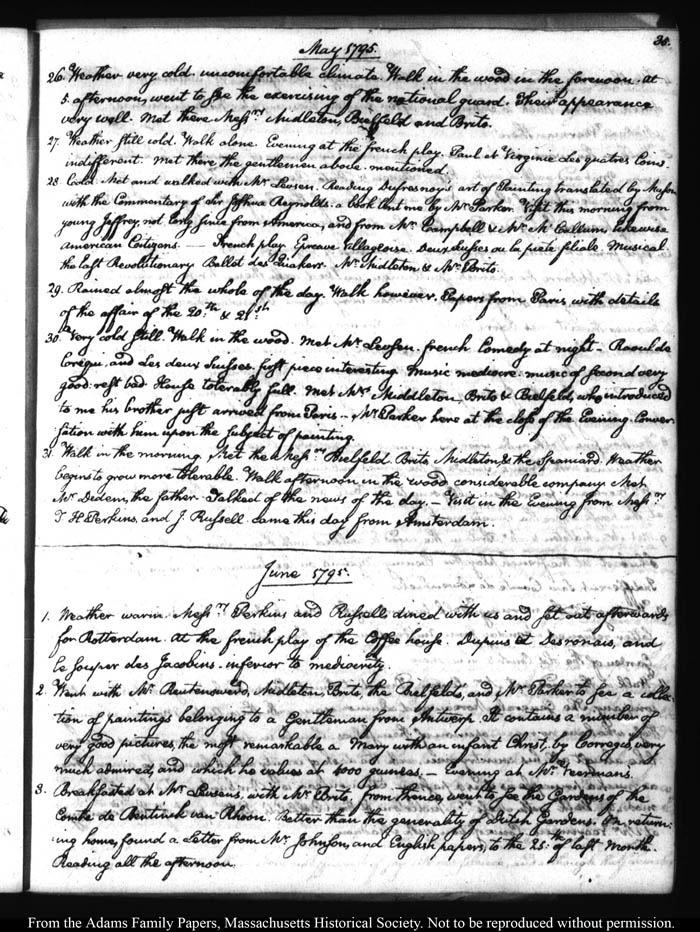 35.
May 1795.
26. Weather very cold. uncomfortable climate. Walk in the wood in the forenoon. At
5. afternoon, went to see the exercising of the national guard. Their appearance
very well. Met there Messrs. Midleton, Bielfeld and Brito.
27. Weather still cold. Walk alone. Evening at the french play. Paul et Virginie. Les quatres Coins.
indifferent. Met there the gentlemen above-mentioned.
28. Cold. Met and walked with Mr. Levsen. Reading Dufresnoy's art of Painting translated by Mason
with the Commentary of Sir Joshua Reynolds. a book lent me by Mr. Parker. Visit this morning from
young Jeffrey, not long since from America, and from Mr. Campbell & Mr. McCallum, likewise
American Citizens. — French play. Epreuve Villageoise. Deux Suisses ou la piete filiale. Musical
the last Revolutionary Ballet des Quakers. Mr. Midleton & Mr. Brito.
29. Rained almost the whole of the day. Walk however. Papers from Paris with details
of the affair of the 20th. & 21st.
30. Very cold still. Walk in the wood. Met Mr. Levsen. french Comedy at night — Raoul de
Crequi, and Les deux Suisses. first piece interesting. Music mediocre. music of second very
good: rest bad. House tolerably full. Met Mrs. Middleton, Brito & Bielfeld, who introduced
to me his brother just arrived from Paris — Mr. Parker here at the close of the Evening. Conver-
sation with him upon the subject of painting.
31. Walk in the morning. Met the Messrs. Bielfeld Brito, Midleton, & the Spaniard. Weather
begins to grow more tolerable. Walk afternoon in the wood considerable company. Met
Mr. Dedem, the father. Talked of the news of the day. — Visit in the Evening from Messrs.
T H Perkins, and J. Russell. Came this day from Amsterdam.
June 1795.
1. Weather warm. Messrs. Perkins and Russell, dined with us and set out afterwards
for Rotterdam. At the french play of the Coffee house. Dupuis et Desronais, and
le souper des Jacobins. inferior to mediocrity.
2. Went with Mr. Reutersward, Midleton, Brito, the Bielfelds, and Mr. Parker to see a collec-
tion of paintings belonging to a Gentleman from Antwerp. It contains a number of
very good pictures, the most remarkable a Mary with an infant Christ, by Corregio, very
much admired, and which he values at 4000 guineas. — Evening at Mr. Veermans.
3. Breakfasted at Mr. Levsens, with Mr. Brito. from thence, went to see the Gardens of the
Comte de Bentinck van Rhoon. Better than the generality of Dutch Gardens. On return-
ing home, found a Letter from Mr. Johnson, and English papers, to the 25th. of last Month.
Reading all the afternoon.
From the Adams Family Papers, Massachusetts Historical Society. Not to be reproduced without permission.